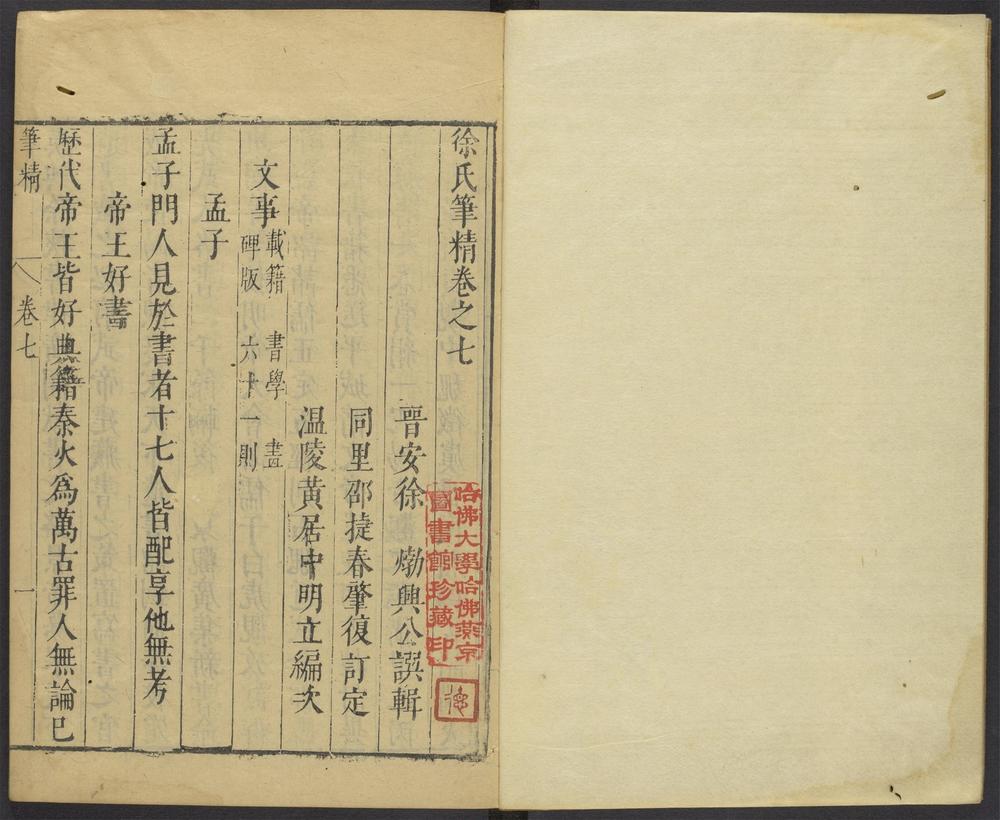 徐氏筆精卷之七
晋安徐 𤊹興公譔輯
同里邵捷春肇復訂定
温陵黃居中明立編次
文事 載籍 書學 畫
碑版 六十一則
孟子
孟子門人見於書者十七人皆配享他無考
帝王好書
歷代帝王皆好典籍秦火爲萬古罪人無論已
筆精 卷七 一
哈佛大學哈佛燕京
圖書館珍藏印